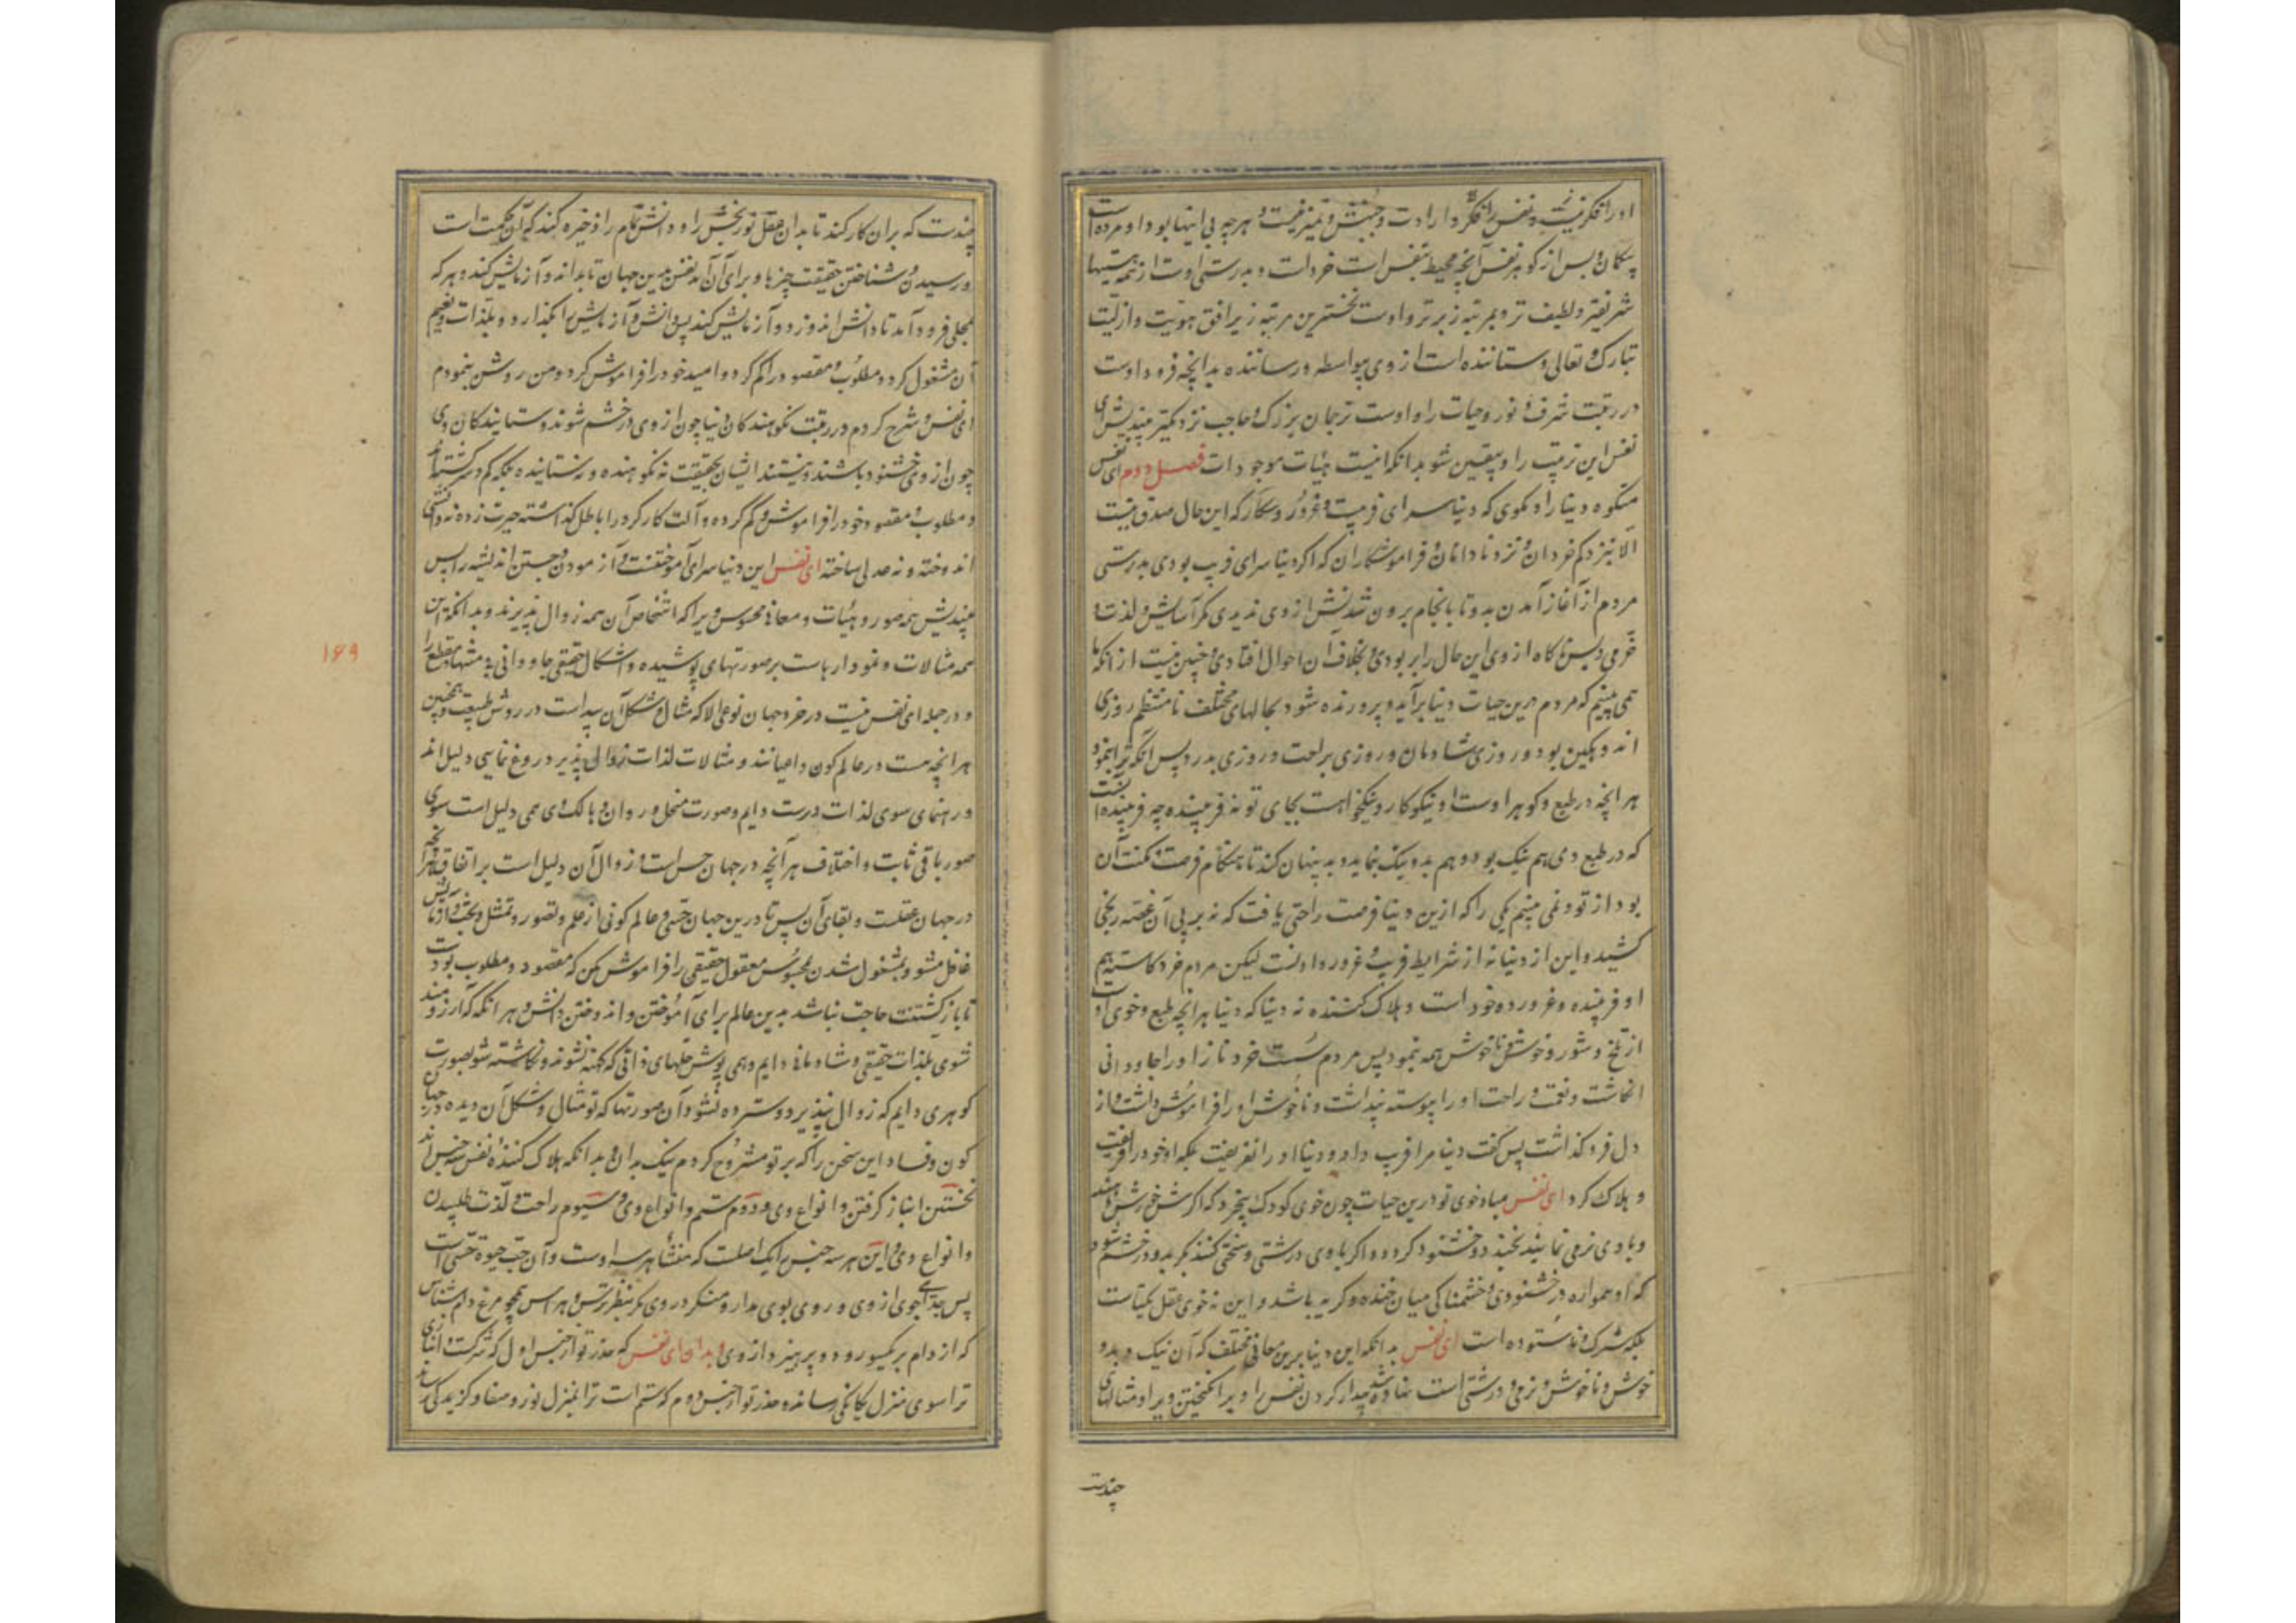 او را فکر نیست و نفس را فکر و ارادت و جنبش و تمیز نیست و هر چه بی اینها بود او مرده است
بیگمان و بس از گوهر نفس آنچه محیط بنفس است خرد است و بدرستی اوست از همه هستیها
شریفتر و لطیف تر و بمرتبه زبرتر و اوست نخسترین مرتبه زیر افق هویت و ازلیت
تبارک و تعالی و ستاننده است از وی بیواسطه و رساننده بدانچه فرود اوست
در رتبت شرف و نور و حیات را و اوست ترجمان بزرگ و حاجب نزدیکتر بیندیش ای
نفس این ترتیب را و بیقین شو بدانکه اینست هیات موجودات فصل دوم ای نفس
منکوه دنیا را و مگوی که دنیا سرای فریب و غرور و مکار که این حال صدق نیست
الا بنزد کم خردان و نزد نادانان و فراموشکاران که اگر دنیا سرای فریب بودی بدرستی
مردم از آغاز آمدن بدو تا بانجام برون شدنش از وی ندیدی مگر آسایش و لذت و
خرمی و پس ناگاه از وی این حال را بر بودی و بخلاف آن احوال افتادی و چنین نیست از انکه ما
همی بینیم که مردم درین حیات دنیا برآید و پرورنده شود بحالهای مختلف نامنتظم روزی
اندوهگین بود و روزی شادمان و روزی براحت و روزی بدرد پس آنکه ترا بنمود
هر آنچه در طبع و گوهر اوست او نیکوکار و نیکخواهست بجای تو نه فریبنده چه فریبنده آنست
که در طبع وی هم نیک بود و هم بد و نیک بنماید و بد پنهان کند تا هنگام فرصت مکنت آن
بود از تو و نمی بینیم یکی را که ازین دنیا فرصت راحتی یافت که نه بر پی آن غصه رنجی
کشید و این از دنیا نه از شرایط فریب و غرور دادنست لیکن مردم خرد کاسته هم
او فریبنده و غرور ده خود است و هلاک کننده نه دنیا که دنیا هر آنچه طبع و خوی اوست
از تلخ و شور و خوش و ناخوش همه بنمود پس مردم سست خرد ناز او را جاودانی
انگاشت و نعمت و راحت او را پیوسته پنداشت و ناخوش او را فراموش داشت و از
دل فرو گذاشت پس گفت دنیا مرا فریب داد و دنیا او را نفریفت بلکه او خود را فریفت
و هلاک کرد ای نفس مباد خوی تو درین حیات چون خوی کودک بیخرد که اگرش خورش دهند
و با وی نرمی نمایند بخندد و خشنود گردد و اگر با وی درشتی و سختی کنند بگرید و در خشم شود
که او همواره در خشنودی و خشمناکی میان خنده و گریه باشد و این نه خوی عقل یکتاست
بلکه شرک و ناستوده است ای نفس بدانکه این دنیا برین معانی مختلف که آن نیک و بد و
خوش و ناخوش و نرمی و درشتی است نهاده شد بیدار کردن نفس را و بر انگیختن ویرا و مثالهای
چندست
چندست که بران کار کند تا بدان عقل نوربخش را و دانش تمام را ذخیره کند که آن حکمت است
و رسیدن و شناختن حقیقت چیزها و برای آن آمد نفس بدین جهان تا بداند و آزمایش کند و هر که
بمحلی فرود آمد تا دانش اندوزد و آزمایش کند پس دانش و آزمایش را بگذارد و بلذات و نعیم
آن مشغول گردد مطلوب و مقصود را گم کرد و امید خود را فراموش کرد و من روشن بنمودم
ای نفس و شرح کردم در رتبت نکوهندگان دنیا چون از وی در خشم شوند و ستایندگان وی
چون از وی خشنود باشند و نیستند ایشان بحقیقت نه نکوهنده و نه ستاینده بلکه گم و سرگشته اند
و مطلوب و مقصود خود را فراموش و گم کرده و آلت کارکرد را باطل گذاشته حیرت زده نه دانشی
اندوخته و نه عدلی ساخته ای نفس این دنیا سرای آموختنست و آزمودن و جستن اندیشه را پس
بیندیش همه صور و هیات و معانی محسوس ویرا که اشخاص آن همه زوال پذیرند و بدانکه این
همه مثالات و نمودارهاست بر صورتهای پوشیده و اشکال حقیقی جاودانی بی منتها و مقطع را
و در جمله ای نفس نیست در خرد جهان نوعی الا که مثال و شکل آن پیداست در روش طبیعت و همچنین
هر انچه هست در عالم کون و اعیانند و مثالات لذات زوال پذیر دروغ نمایی دلیل اند
و رهنمای سوی لذات درست دایم و صورت منحل و روان و هالک وی همی دلیل است سوی
صور باقی ثابت و اختلاف هر آنچه در جهان حس است و زوال آن دلیل است بر اتفاق هر آنچه
در جهان عقلست و بقای آن پس تا درین جهان حسی و عالم کونی از علم و تصور و تمثل و بحث و آزمایش
غافل مشو و بمشغول شدن بمحسوس معقول حقیقی را فراموش مکن که مقصود و مطلوب بودت
تا باز گشتنت حاجت نباشد بدین عالم برای آموختن و اندوختن دانش و هر انگه که آرزومند
شوی بلذات حقیقی و شادمانی دایم و همی پوش حلهای ذاتی که کهنه نشوند و نگاشته شو بصورت
گوهری دایم که زوال نپذیرد و سترده نشود آن صورتها که تو مثال و شکل آن دیده در جهان
کون و فساد این سخن را که بر تو مشروح کردم نیک بدان و بدانکه هلاک کننده نفس سه جنس اند
نخستین انباز گرفتن و انواع وی و دوم ستم و انواع وی و سیوم راحت و لذت طلبیدن
و انواع وی و این هر سه جنس را یک اصلست که منشا هر سه اوست و آن حب حیوة حسی است
پس جدائی جوی از وی و روی بوی مدار و منگر در وی مگر بنظر ترس و هراس همچو مرغ دام شناس
که از دام بر یکسو رود و بپرهیزد از وی و بدان ای نفس که حذر تو از جنس اول که شرکت و انبازی
ترا سوی منزل یگانگی رساند و حذر تو از جنس دوم که ستم است ترا بمنزل نور و صفا و گزیدگی رساند
۱۶۹